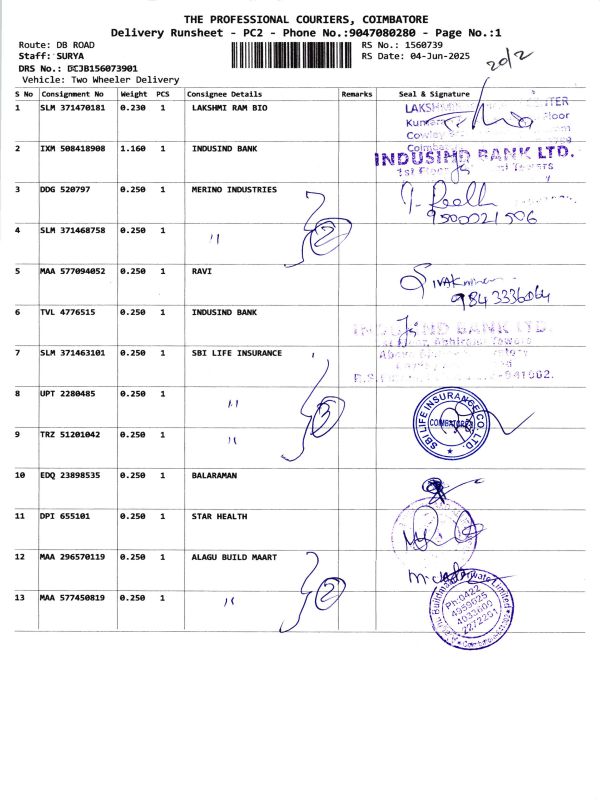 THE PROFESSIONAL COURIERS, COIMBATORE
Delivery Runsheet - PC2 - Phone No.:9047080280 - Page No.:1
Route: DB ROAD
RS No.: 1560739
Staff: SURYA
RS Date: 04-Jun-2025
20/2
DRS No.: BCJB156073901
Vehicle: Two Wheeler Delivery
S No Consignment No Weight PCS Consignee Details Remarks Seal & Signature
1 SLM 371470181 0.230 1 LAKSHMI RAM BIO
2 IXM 508418908 1.160 1 INDUSIND BANK
INDUSIND BANK LTD.
3 DDG 520797 0.250 1 MERINO INDUSTRIES
9500021506
4 SLM 371468758 0.250 1 "
2
5 MAA 577094052 0.250 1 RAVI
9843336064
6 TVL 4776515 0.250 1 INDUSIND BANK
INDUSIND BANK LTD.
7 SLM 371463101 0.250 1 SBI LIFE INSURANCE
8 UPT 2280485 0.250 1 "
3
SBI LIFE INSURANCE CO. LTD.
COIMBATORE
9 TRZ 51201042 0.250 1 "
10 EDQ 23898535 0.250 1 BALARAMAN
11 DPI 655101 0.250 1 STAR HEALTH
12 MAA 296570119 0.250 1 ALAGU BUILD MAART
13 MAA 577450819 0.250 1 "
2
Ph:0422
4959025
4033600
2272201